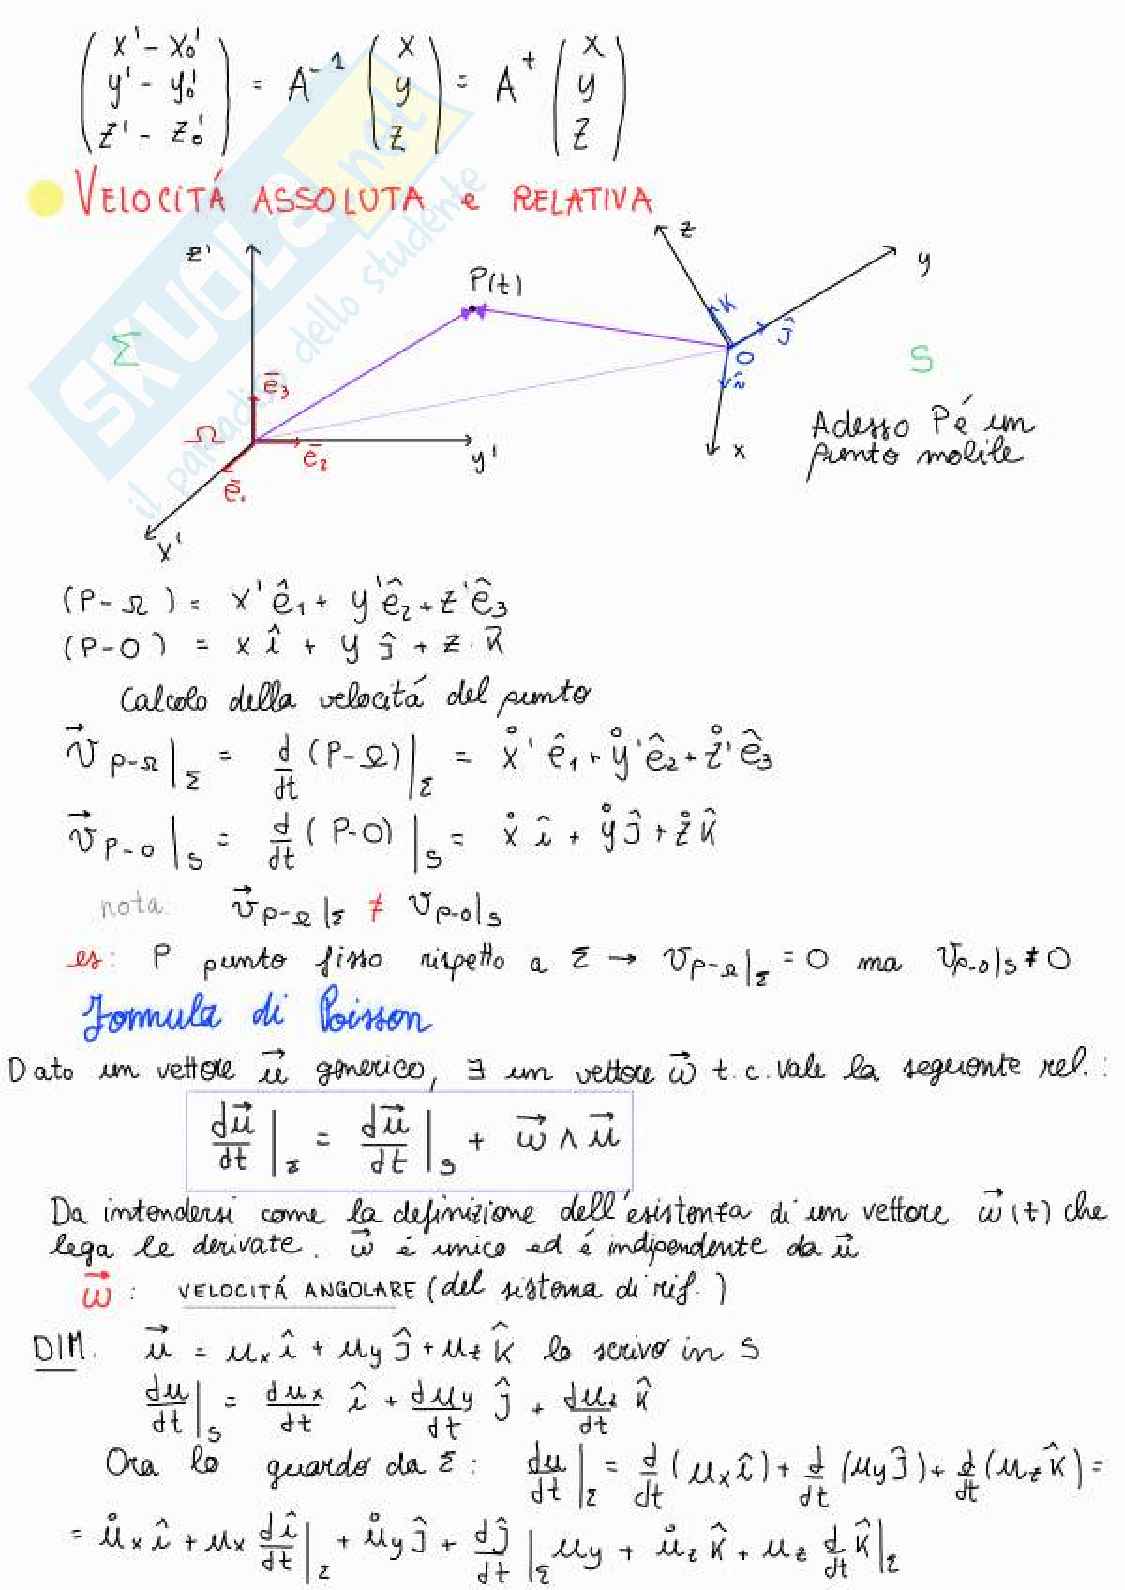 ( x' - x₀' ; y' - y₀' ; z' - z₀' ) = A⁻¹ ( x ; y ; z ) = A⁺ ( x ; y ; z )
VELOCITÁ ASSOLUTA e RELATIVA
SKUOLA.net
il paradiso dello studente
z'
z
y
P(t)
Σ
k
ĵ
O
î
S
ē₃
Ω
ē₂
y'
x
ē₁
x'
Adesso P é un
punto mobile
(P-Ω) = x'ê₁ + y'ê₂ + z'ê₃
(P-O) = x î + y ĵ + z · k̂
Calcolo della velocitá del punto
v⃗ P-Ω |Σ = d/dt (P-Ω) |Σ = ẋ' ê₁ + ẏ' ê₂ + ż' ê₃
v⃗ P-O |S = d/dt (P-O) |S = ẋ î + ẏ ĵ + ż k̂
nota: v⃗ P-Ω |Σ ≠ v P-O |S
es: P punto fisso rispetto a Σ → v P-Ω |Σ = 0 ma v P-O |S ≠ 0
Formula di Poisson
Dato un vettore u⃗ generico, ∃ un vettore ω⃗ t.c. vale la seguente rel.:
du⃗/dt |Σ = du⃗/dt |S + ω⃗ ∧ u⃗
Da intendersi come la definizione dell'esistenza di un vettore ω⃗(t) che
lega le derivate. ω⃗ é unico ed é indipendente da u⃗
ω⃗ : VELOCITÁ ANGOLARE (del sistema di rif.)
DIM. u⃗ = uₓ î + u_y ĵ + u_z k̂ lo scrivo in S
du/dt |S = duₓ/dt î + du_y/dt ĵ + du_z/dt k̂
Ora lo guardo da Σ : du/dt |Σ = d/dt (uₓ î) + d/dt (u_y ĵ) + d/dt (u_z k̂) =
= u̇ₓ î + uₓ dî/dt |Σ + u̇_y ĵ + dĵ/dt |Σ u_y + u̇_z k̂ + u_z d/dt k̂ |Σ